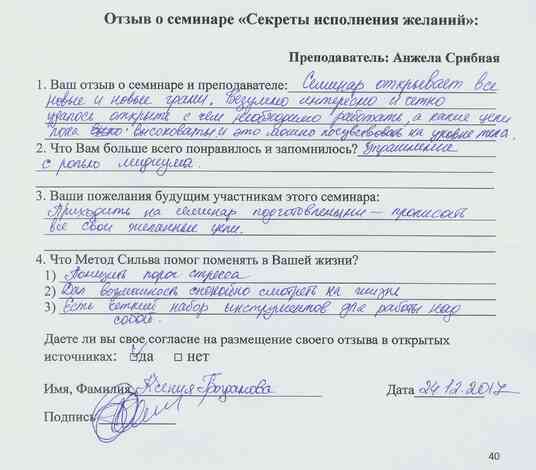 Отзыв о семинаре «Секреты исполнения желаний»:
Преподаватель: Анжела Срибная
1. Ваш отзыв о семинаре и преподавателе: Семинар открывает все
новые и новые грани. Безумно интересно и
удалось открыть с чем необходимо работать, а какие цели
пока высоковаты и это можно почувствовать на уровне тела.
2. Что Вам больше всего понравилось и запомнилось? Упражнение
с ролью медиума.
3. Ваши пожелания будущим участникам этого семинара:
Приходить на семинар подготовленными – прописать
все свои желанные цели.
4. Что Метод Сильва помог поменять в Вашей жизни?
1) Понизить порог стресса
2) Дал возможность спокойно смотреть на жизнь
3) Есть четкий набор инструментов для работы над
собой.
Даете ли вы свое согласие на размещение своего отзыва в открытых
источниках: да нет
Имя, Фамилия Ксения Дата 24.12.2017
Подпись
40